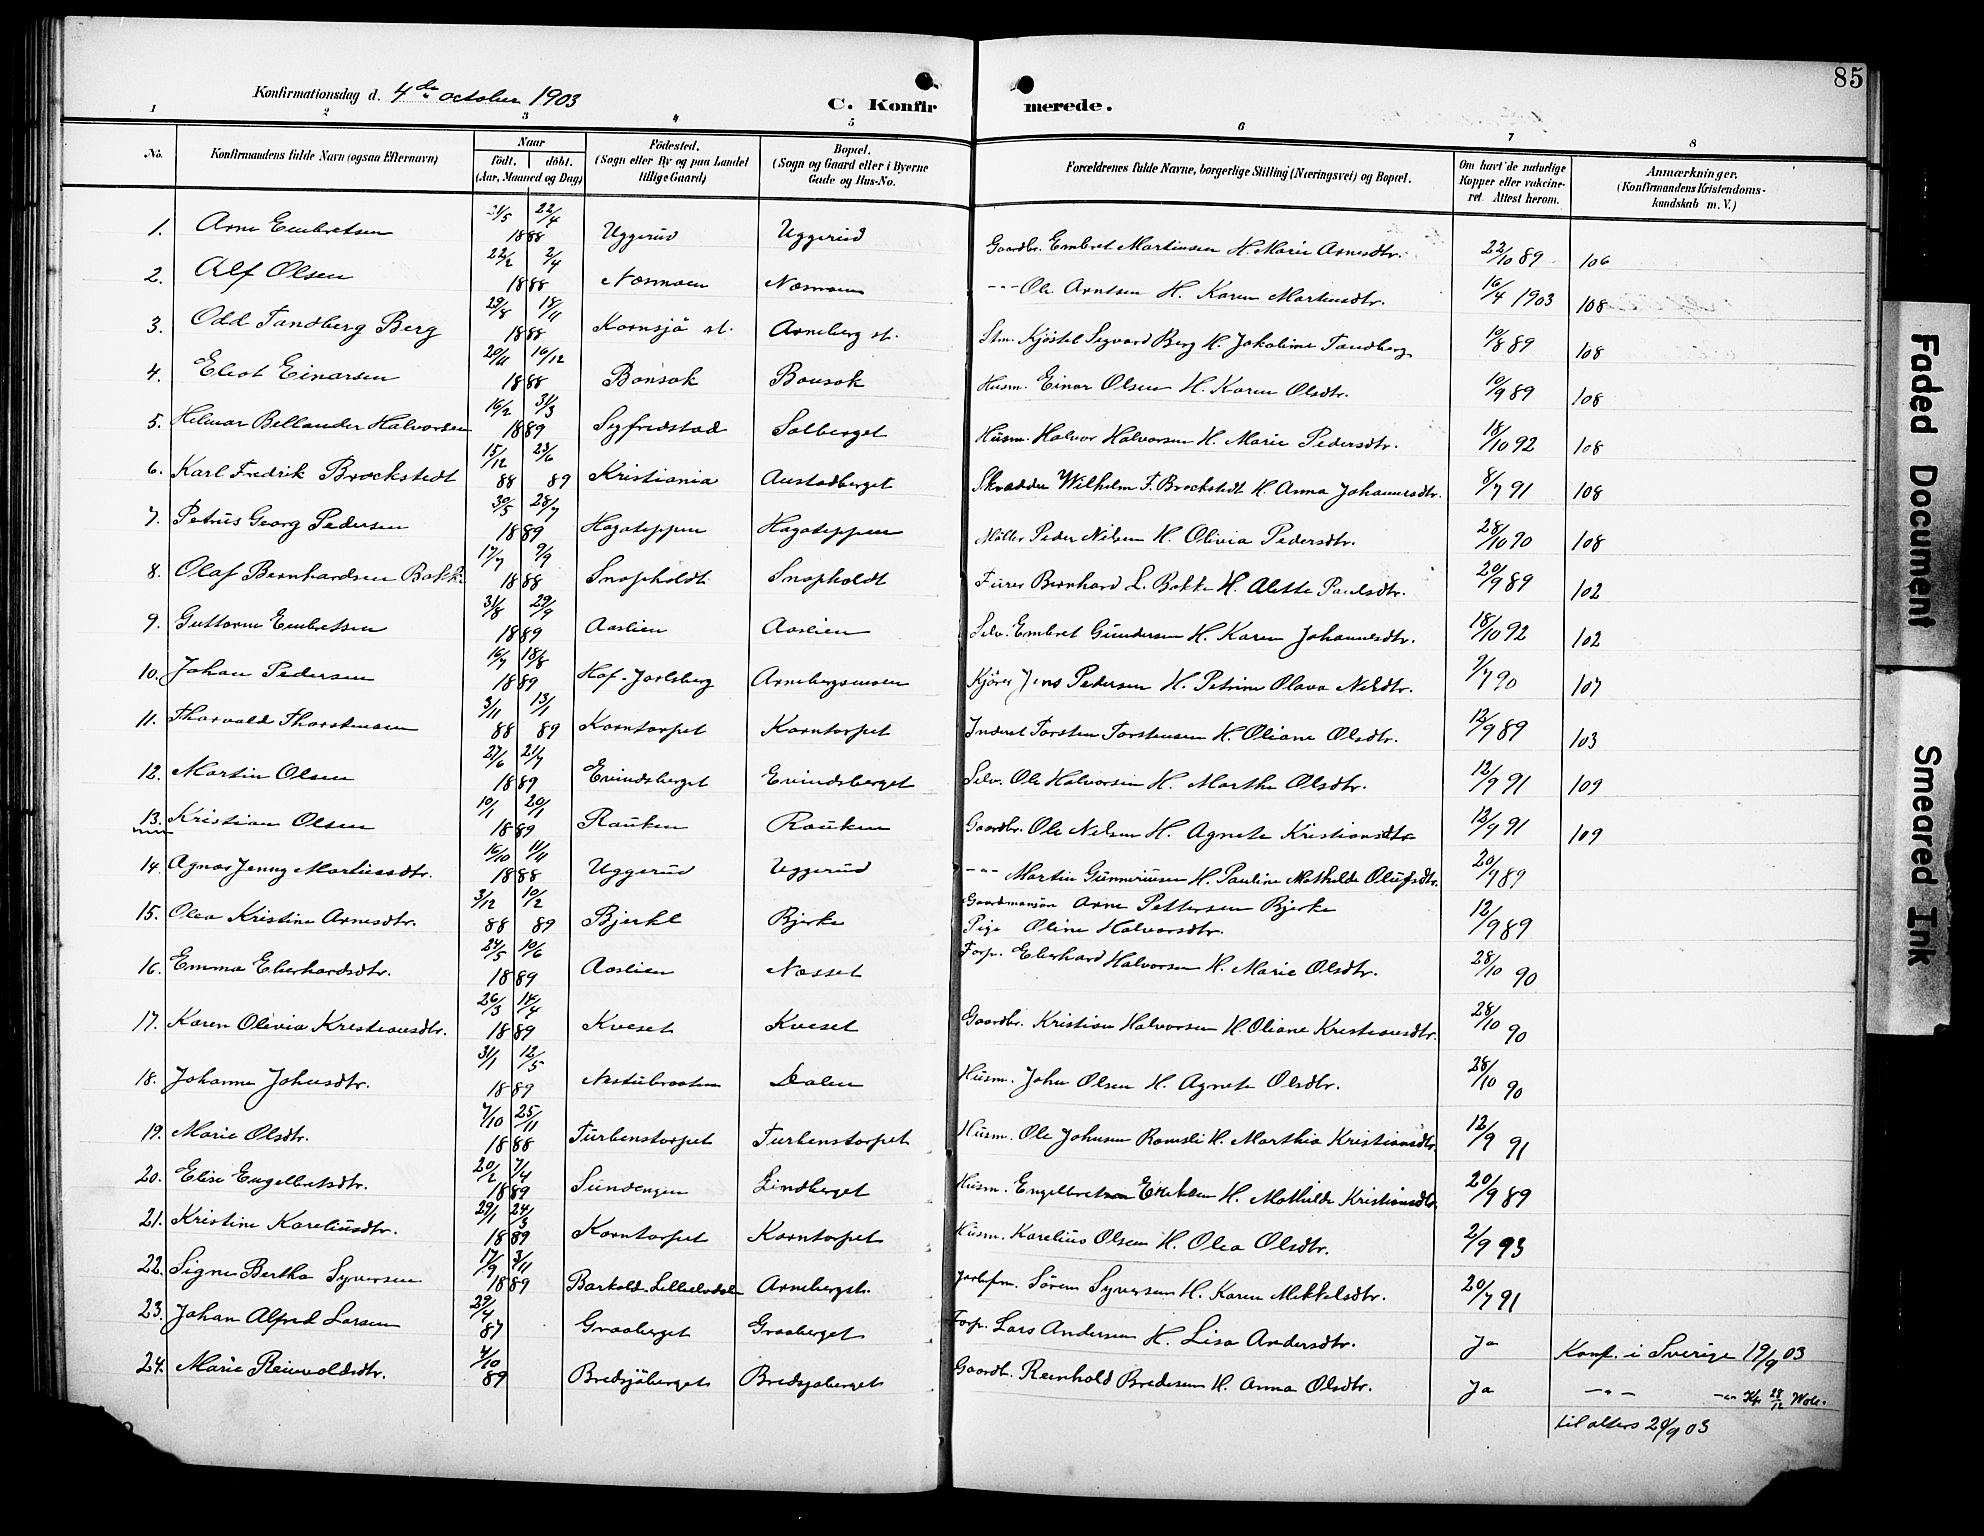 85
Konfirmationsdag d. 4de october 1903
C. Konfirmerede.
1 2 3 4 5 6 7 8
No. | Konfirmandens fulde Navn (ogsaa Efternavn) | Naar født. døbt. (Aar, Maaned og Dag) | Fødested. (Sogn eller By og paa Landet tillige Gaard) | Bopæl. (Sogn og Gaard eller i Byerne Gade og Hus-No. | Forældrenes fulde Navne, borgerlige Stilling (Næringsvei) og Bopæl. | Om havt de naturlige Kopper eller vakcineret. Attest herom. | Anmærkninger. (Konfirmandens Kristendomskundskab m. V.)
1. Arne Embretsen | 22/4 1888 | Uggerud | Uggerud | Gaardbr. Embret Martinsen H. Marie Arnesdtr. | 22/10 89 | 106
2. Alf Olsen | 22/2 2/4 1888 | Næsmoen | Næsmoen | -"- Ole Arntsen H. Karen Martinsdtr. | 16/4 1903 | 108
3. Odd Tandberg Berg | 29/8 18/11 1888 | Kornsjø st. | Arneberg st. | Stm. Kjøstel Segvard Berg H. Jakobine Tandberg | 10/8 89 | 108
4. Eliot Einarsen | 20/11 16/12 1888 | Bonsak | Bonsak | Husm. Einar Olsen H. Karen Olsdtr. | 10/9 89 | 108
5. Helmar Bellander Halvorsen | 16/2 31/3 1889 | Sigfredstad | Solberget | Husm. Halvor Halvorsen H. Marie Pedersdtr. | 18/10 92 | 108
6. Karl Fredrik Brockstedt | 15/12 23/6 88 89 | Kristiania | Austadberget | Skrædder Wilhelm F. Brockstedt H. Anna Johannesdtr. | 8/7 91 | 108
7. Petrus Georg Pedersen | 30/5 28/7 1889 | Hagateppen | Hagateppen | Møller Peder Nilsen H. Olivia Pedersdtr. | 28/10 90 | 108
8. Olaf Bernhardsen Bakke | 17/7 9/9 1888 | Snapholdt | Snapholdt | Furer Bernhard L. Bakke H. Alette Paulsdtr. | 20/9 89 | 102
9. Guttorm Embretsen | 31/8 29/9 1889 | Aaslien | Aaslien | Selv. Embret Gundersen H. Karen Johannesdtr. | 18/10 92 | 102
10. Johan Pedersen | 16/7 18/8 1889 | Hof-Jarlsberg | Arnebergsmoen | Kjører Jens Pedersen H. Petrine Olava Nilsdtr. | 9/7 90 | 107
11. Thorvald Thorstensen | 3/11 13/1 88 89 | Korntorpet | Korntorpet | Inderst Torsten Torstensen H. Oliane Olsdtr. | 12/9 89 | 103
12. Martin Olsen | 27/6 21/7 1889 | Evindsberget | Evindsberget | Selv. Ole Halvorsen H. Marthe Olsdtr. | 12/9 91 | 109
13. Kristian Olsen | 10/1 20/1 1889 | Rauken | Rauken | Gaardbr. Ole Nilsen H. Agnete Kristiansdtr | 12/9 91 | 109
14. Agnar Jenny Martinsdtr. | 16/10 11/11 1888 | Uggerud | Uggerud | -"- Martin Gunneriusen H. Pauline Mathilde Olufsdtr. | 20/9 89
15. Olea Kristine Arnesdtr. | 3/12 10/2 88 89 | Bjerke | Bjerke | Gaardmansøn Arne Pettersen Bjerke
Pige Oline Halvorsdtr. | 12/9 89
16. Emma Eberhardsdtr. | 24/5 10/6 1889 | Aaslien | Næsset | Forp. Eberhard Halvorsen H. Marie Olsdtr. | 28/10 90
17. Karen Olivia Kristiansdtr. | 26/3 14/4 1889 | Kveset | Kveset | Gaardbr. Kristian Halvorsen H. Oliane Kristiansdtr. | 28/10 90
18. Johanne Johnsdtr. | 31/1 12/5 1889 | Nestubraaten | Dalen | Husm. John Olsen H. Agnete Olsdtr. | 28/10 90
19. Marie Olsdtr. | 7/10 25/11 1888 | Turbenstorpet | Turbenstorpet | Husm. Ole Johnsen Ramsli H. Marthia Kristiansdtr. | 12/9 91
20. Elise Engelbretsdtr. | 20/2 7/4 1889 | Sundengen | Lindberget | Husm. Engelbret H. Mathilde Kristiansdtr. | 20/9 89
21. Kristine Kareliusdtr. | 29/1 24/3 1889 | Korntorpet | Korntorpet | Husm. Karelius Olsen H. Olea Olsdtr. | 2/9 93
22. Signe Bertha Syversen | 17/9 3/11 1889 | Barkald | Arnebergst. | Søren Syversen H. Karen Mikkelsdtr. | 20/7 91
23. Johan Alfred Larsen | 29/4 87 | Graaberget | Graaberget | Forp. Lars Andersen H. Lisa Andersdtr. | Ja | Konf. i Sverige 19/9 03
24. Marie Reinoldsdtr. | 4/10 89 | Bredsjøberget | Bredsjøberget | Gaardb. Reinhold Bredesen H. Anna Olsdtr. | Ja | -"- -"- Kp. 28/12
til alters 20/9 03
Faded Document
Smeared Ink